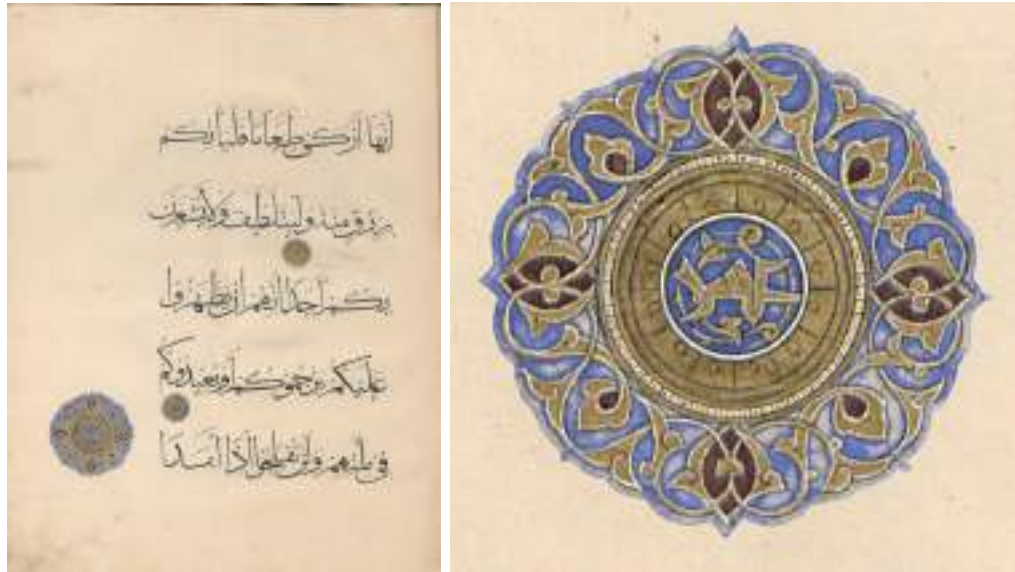 أيها أزكى طعاما فليأتكم
برزق منه وليتلطف ولا يشعرن
بكم أحدا إنهم إن يظهروا
عليكم يرجموكم أو يعيدوكم
في ملتهم ولن تفلحوا إذا أبدا